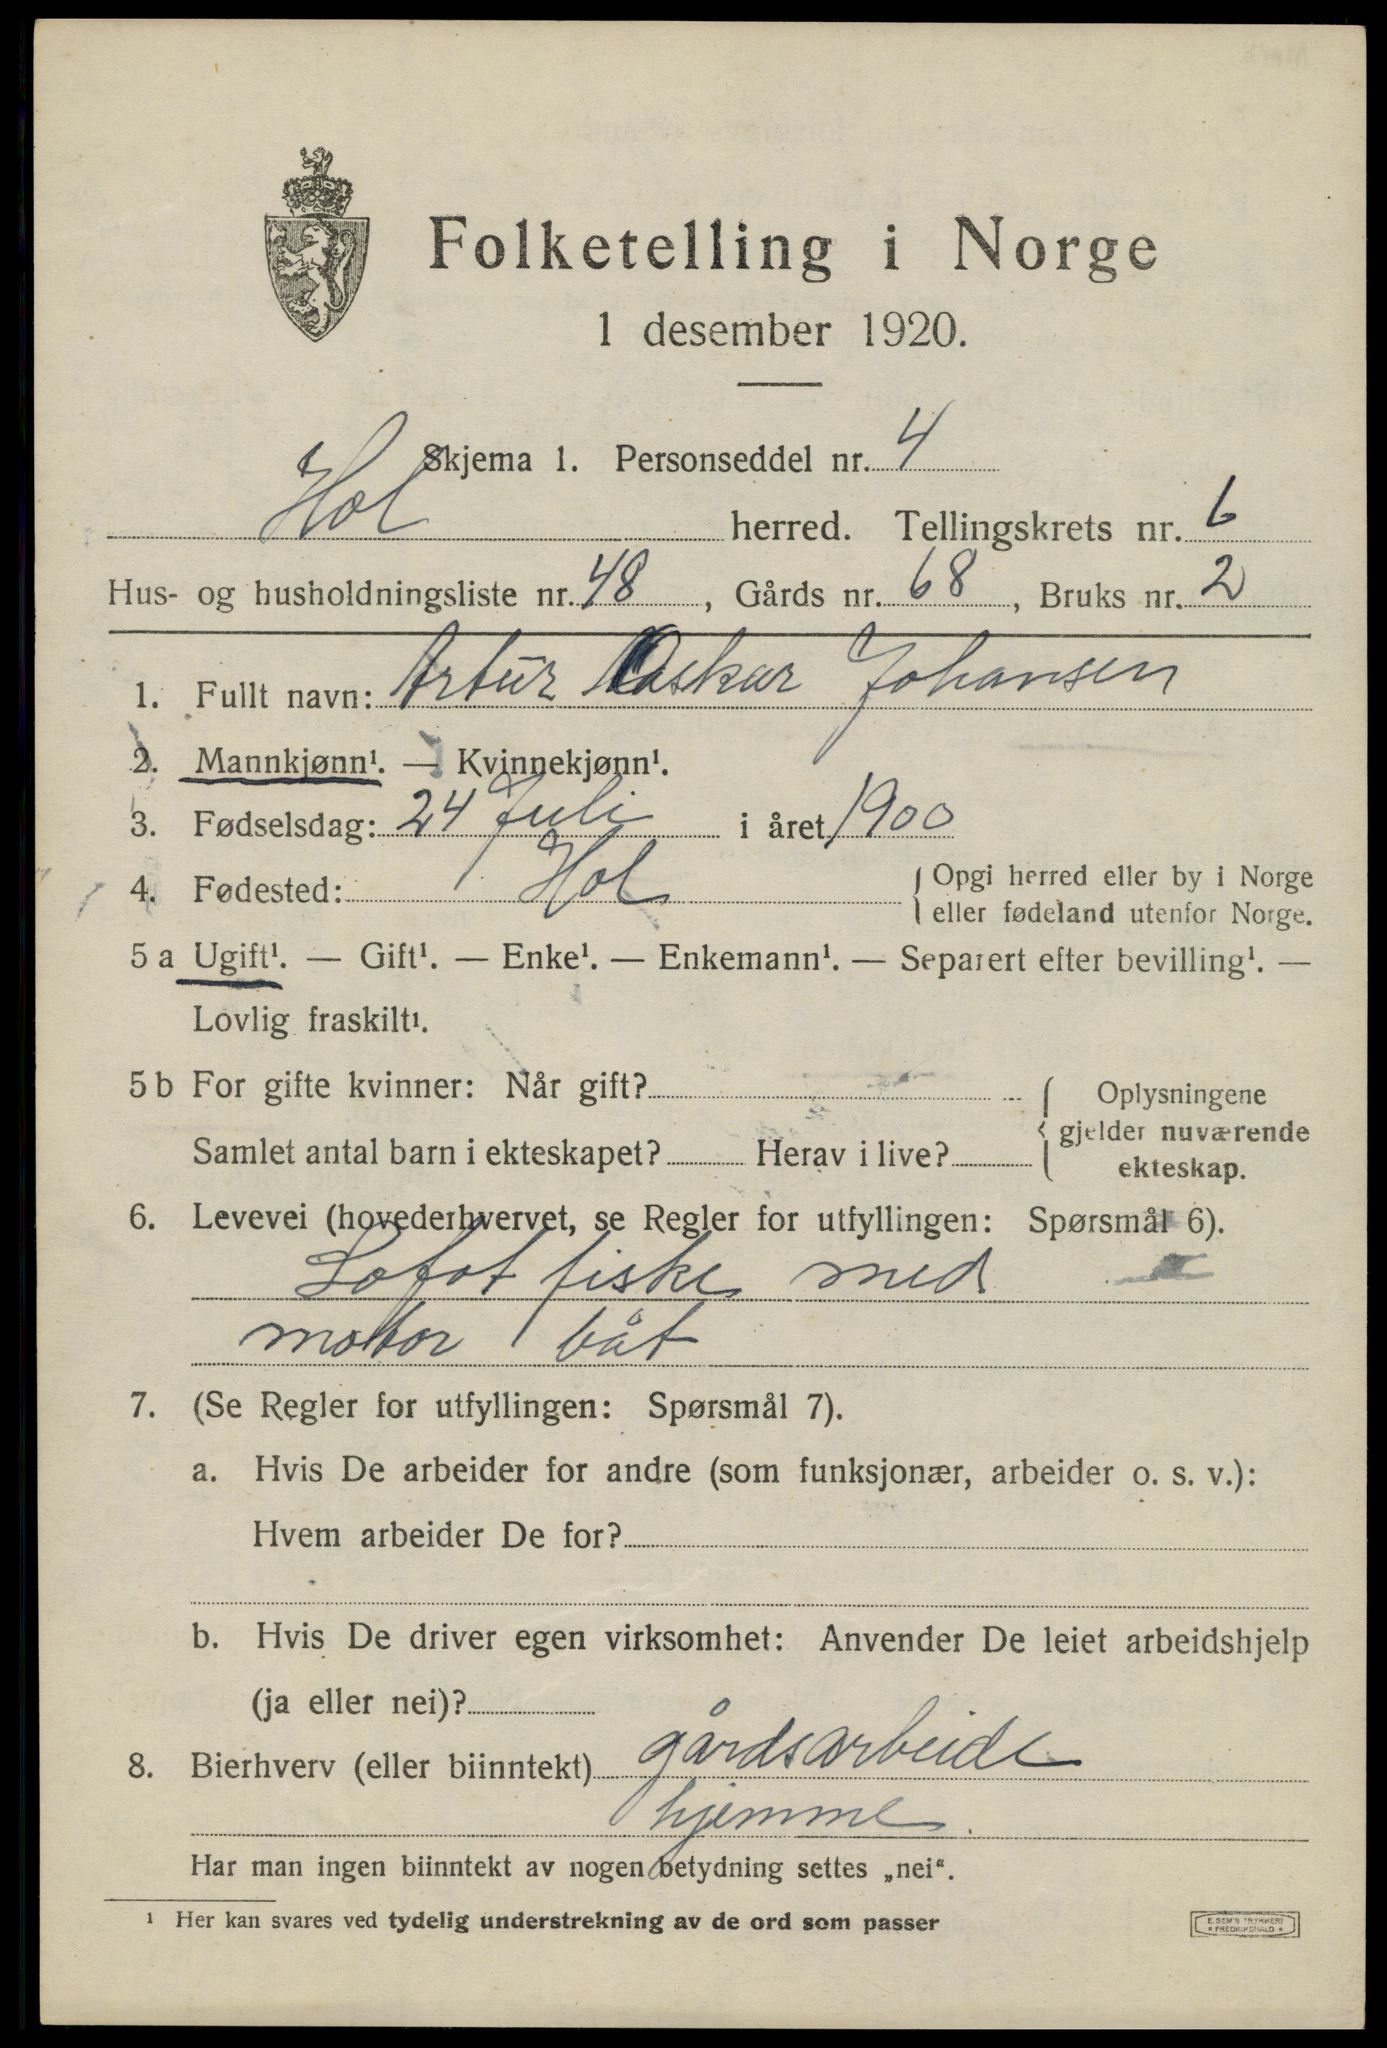 Folketelling i Norge
1 desember 1920.
Skjema 1. Personseddel nr. 4
Hol herred. Tellingskrets nr. 6
Hus- og husholdningsliste nr. 48, Gårds nr. 68, Bruks nr. 2
1. Fullt navn: Artur Oskar Johansen
2. Mannkjønn¹. — Kvinnekjønn¹.
3. Fødselsdag: 24 Juli i året 1900
4. Fødested: Hol { Opgi herred eller by i Norge
eller fødeland utenfor Norge.
5 a Ugift¹. — Gift¹. — Enke¹. — Enkemann¹. — Separert efter bevilling¹. —
Lovlig fraskilt¹.
5 b For gifte kvinner: Når gift? { Oplysningene
gjelder nuværende
Samlet antal barn i ekteskapet? Herav i live?
ekteskap.
6. Levevei (hovederhvervet, se Regler for utfyllingen: Spørsmål 6).
Lofot fiske med
motor båt
7. (Se Regler for utfyllingen: Spørsmål 7).
a. Hvis De arbeider for andre (som funksjonær, arbeider o. s. v.):
Hvem arbeider De for?
b. Hvis De driver egen virksomhet: Anvender De leiet arbeidshjelp
(ja eller nei)?
8. Bierhverv (eller biinntekt) gårdsarbeide
hjemme.
Har man ingen biinntekt av nogen betydning settes „nei“.
¹ Her kan svares ved tydelig understrekning av de ord som passer
E. SEM'S TRYKKERI
* FREDRIKSHALD *